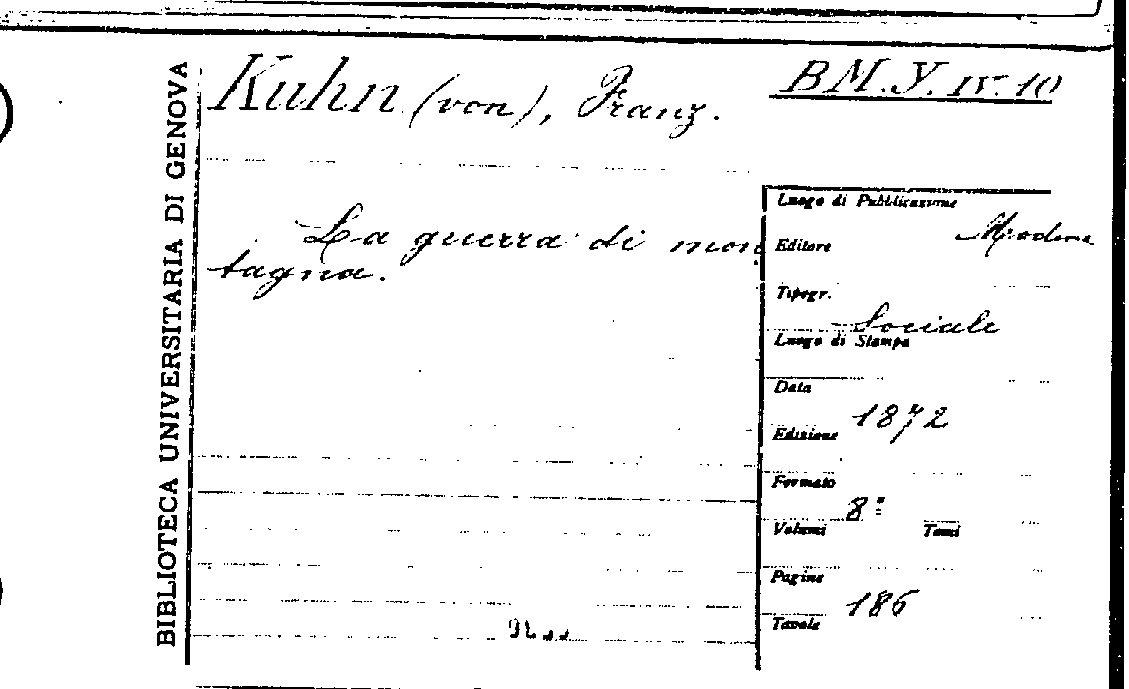 BIBLIOTECA UNIVERSITARIA DI GENOVA
Kuhn (von), Franz.
B M. Y. IV. 10
La guerra di mon
tagna.
Luogo di Pubblicazione
Modena
Editore
Tipogr.
Sociale
Luogo di Stampa
Data
1872
Edizione
Formato
8º
Volumi Tomi
Pagine
186
Tavole